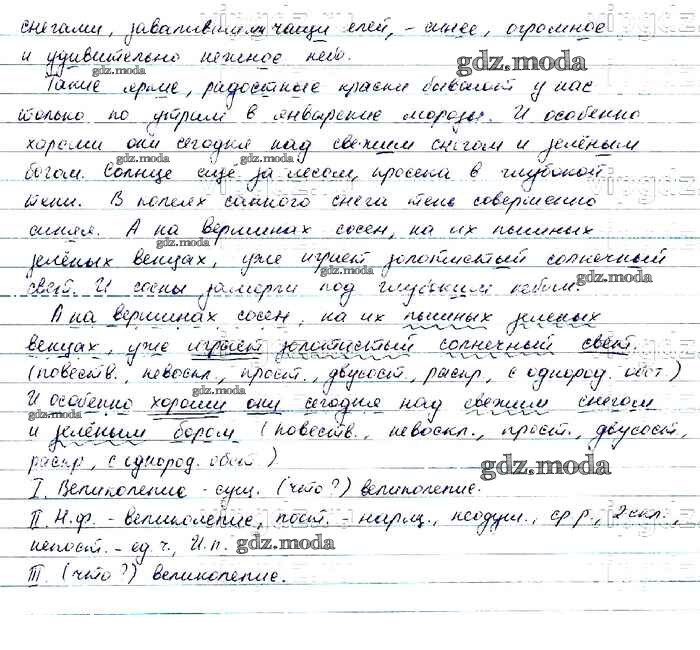 снегами, завалившими чащи елей, - синее, огромное
и удивительно нежное небо.
gdz.moda
Такие яркие, радостные краски бывают у нас
только по утрам в январские морозы. И особенно
хороши они сегодня над свежим снегом и зелёным
gdz.moda gdz.moda
бором. Солнце ещё за лесом, просека в глубокой
тени. В полях санного снега тень совершенно
синяя. А на вершинах сосен, на их пышных
gdz.moda
зелёных венцах, уже играет золотистый солнечный
gdz.moda gdz.moda
свет. И сосны замерли под глубоким небом.
А на вершинах сосен, на их пышных зеленых
венцах, уже играет золотистый солнечный свет.
gdz.moda gdz.moda
(повеств., невоскл., прост., двусост., распр., с однород. обст.)
gdz.moda
И особенно хороши они сегодня над свежим снегом
gdz.moda
и зелёным бором (повеств., невоскл., прост., двусост.,
распр., с однород. обст.)
gdz.moda
I. Великолепие - сущ. (что?) великолепие.
II. Н.ф. - великолепие, пост. - нариц., неодуш., ср.р., 2 скл.,
непост. - ед.ч., И.п. gdz.moda
III. (что?) великолепие.